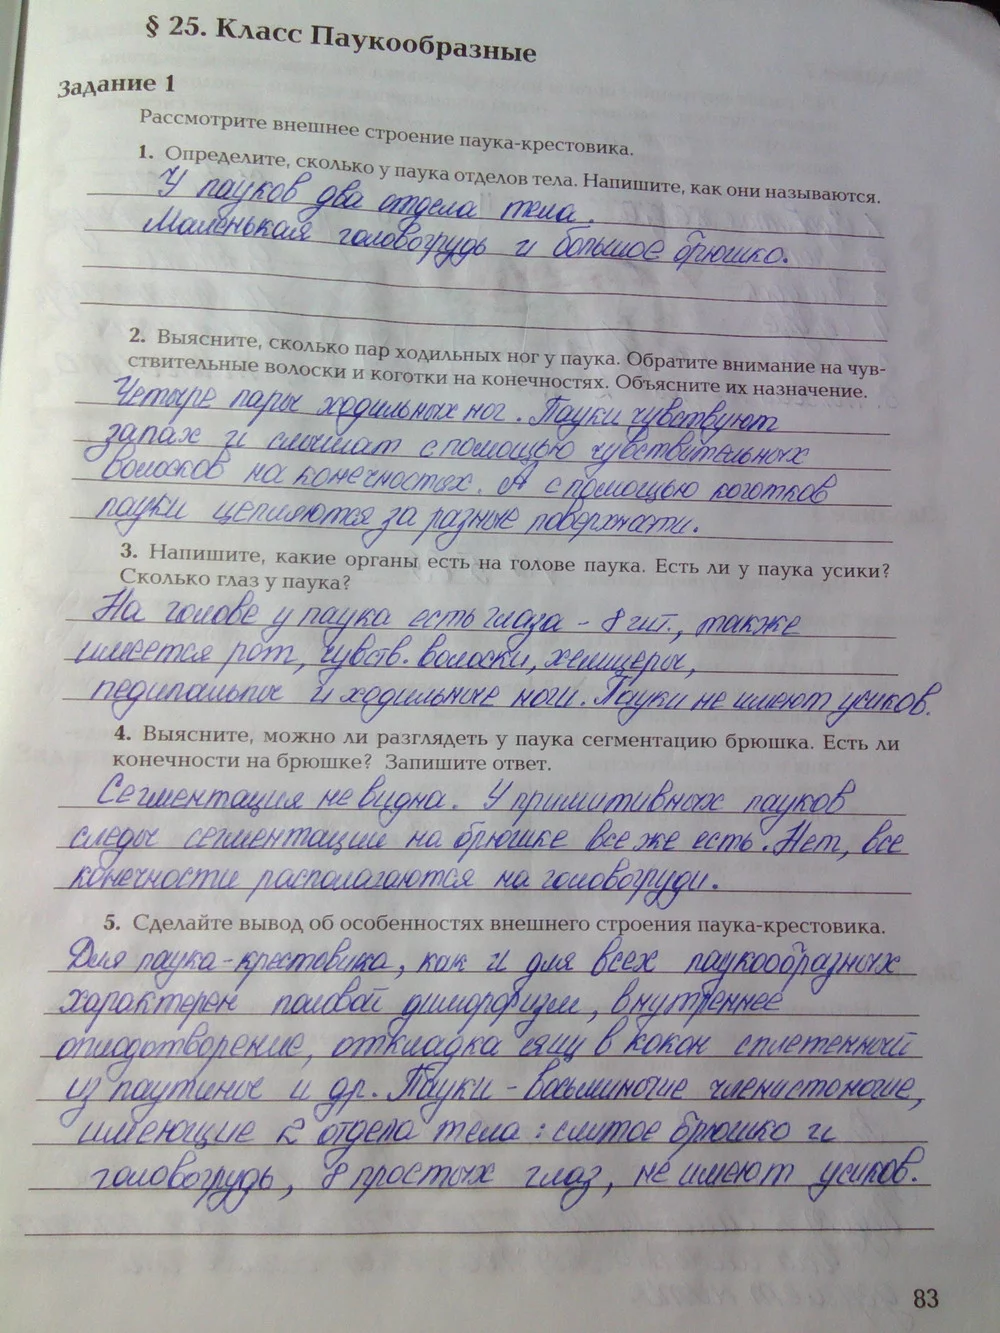 § 25. Класс Паукообразные
Задание 1
Рассмотрите внешнее строение паука-крестовика.
1. Определите, сколько у паука отделов тела. Напишите, как они называются.
У пауков два отдела тела.
Маленькая головогрудь и большое брюшко.
2. Выясните, сколько пар ходильных ног у паука. Обратите внимание на чув-
ствительные волоски и коготки на конечностях. Объясните их назначение.
Четыре пары ходильных ног. Пауки чувствуют
запах и слышат с помощью чувствительных
волосков на конечностях. А с помощью коготков
пауки цепляются за разные поверхности.
3. Напишите, какие органы есть на голове паука. Есть ли у паука усики?
Сколько глаз у паука?
На голове у паука есть глаза - 8 шт., также
имеется рот, чувств. волоски, хелицеры,
педипальпы и ходильные ноги. Пауки не имеют усиков.
4. Выясните, можно ли разглядеть у паука сегментацию брюшка. Есть ли
конечности на брюшке? Запишите ответ.
Сегментация не видна. У примитивных пауков
следы сегментации на брюшке все же есть. Нет, все
конечности располагаются на головогруди.
5. Сделайте вывод об особенностях внешнего строения паука-крестовика.
Для паука-крестовика, как и для всех паукообразных
характерен половой диморфизм, внутреннее
оплодотворение, откладка яиц в кокон сплетенный
из паутины и др. Пауки - восьминогие членистоногие,
имеющие 2 отдела тела: слитое брюшко и
головогрудь, 8 простых глаз, не имеют усиков.
83